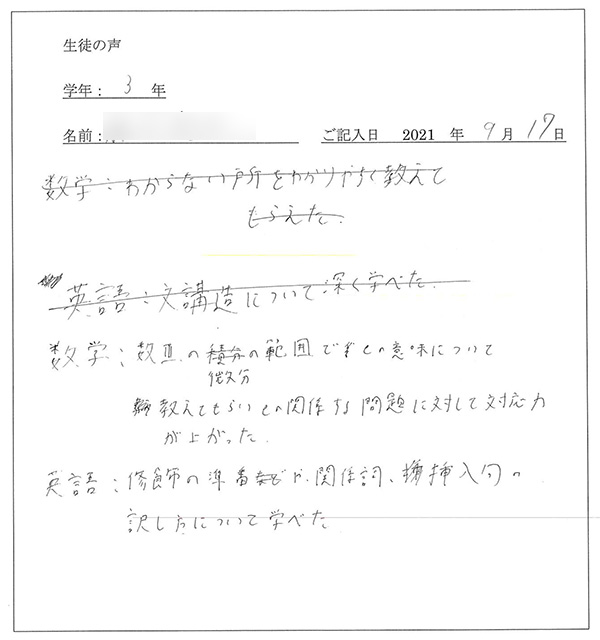 生徒の声
学年： 3 年
名前：
ご記入日 2021 年 9 月 17 日
数学：わからない所をわかりやすく教えて
もらえた.
英語：文講造について深く学べた.
数学：数Ⅲの積分の範囲で の意味について
微分
教えてもらいその関係する問題に対して対応力
が上がった.
英語：修飾の準番などや関係詞、挿入句の
訳し方について学べた.